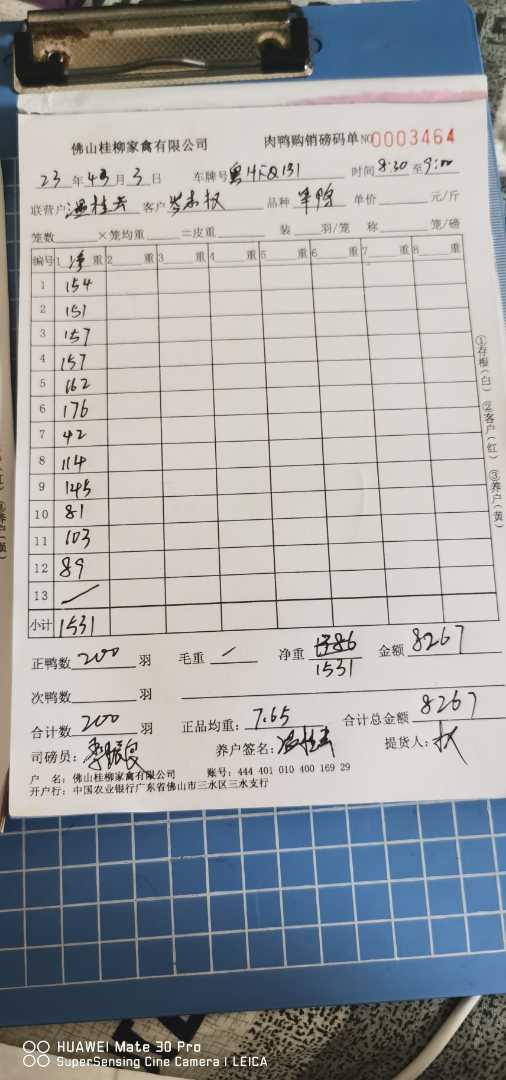 佛山桂柳家禽有限公司 肉鸭购销磅码单 NO 0003464
23 年 4 月 3 日 车牌号 时间 8:30 至 9:00
联营户 客户 品种 单价 元/斤
笼数 ×笼均重 =皮重: 装 羽/笼 称 笼/磅
编号 1 净 重 2 重 3 重 4 重 5 重 6 重 7 重 8 重
1 154
2 151
3 157
4 157
5 162
6 176
7 42
8 114
9 145
10 81
11 103
12 89
13 /
小计 1531
正鸭数 200 羽 毛重 / 净重 1386 金额 8267
1531
次鸭数 羽
合计数 200 羽 正品均重: 7.65 合计总金额 8267
司磅员: 养户签名: 提货人:
户 名: 佛山桂柳家禽有限公司 账号: 444 401 010 400 169 29
开户行: 中国农业银行广东省佛山市三水区三水支行
①存根(白) ②客户(红) ③养户(黄)
HUAWEI Mate 30 Pro
SuperSensing Cine Camera | LEICA